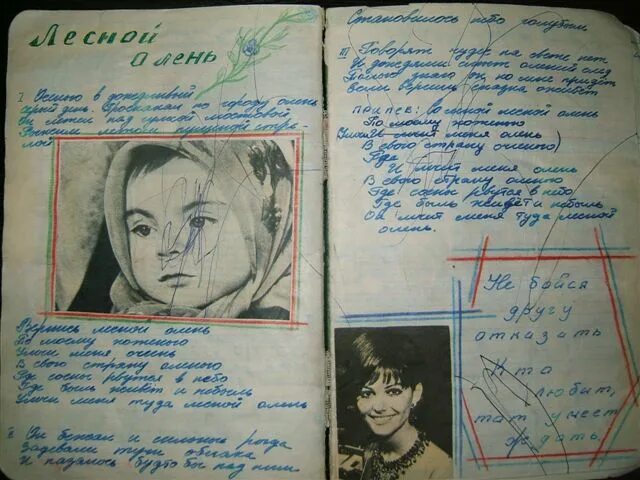 Лесной
Олень
I Осенью в дождливый
серый день. Проскакал по городу олень
Он летел над гулкой мостовой
Рыжим лесом пущенной стре-
лой
Вернись лесной олень
По моему хотению
Умчи меня олень
В свою страну оленю
Где сосны рвутся в небо
Где быль живет и небыль
Умчи меня туда лесной олень
II Он бежал и сильные рога
Задевали тучи облака
И казалось будто бы над ним
Становилось небо голубым
III Говорят чудес на свете нет
И дождями смыт оленей след
Только знаю он ко мне придёт
Если веришь сказка оживёт
припев: Вернись лесной олень
По моему хотению
Умчи меня олень
В свою страну оленю)
Где
И мчит меня олень
В свою страну оленю
Где сосны рвутся в небо
Где быль живёт и небыль
Он мчит меня туда лесной
олень.
Не бойся
другу
отказать
Кто
любит,
тот умеет
ждать.